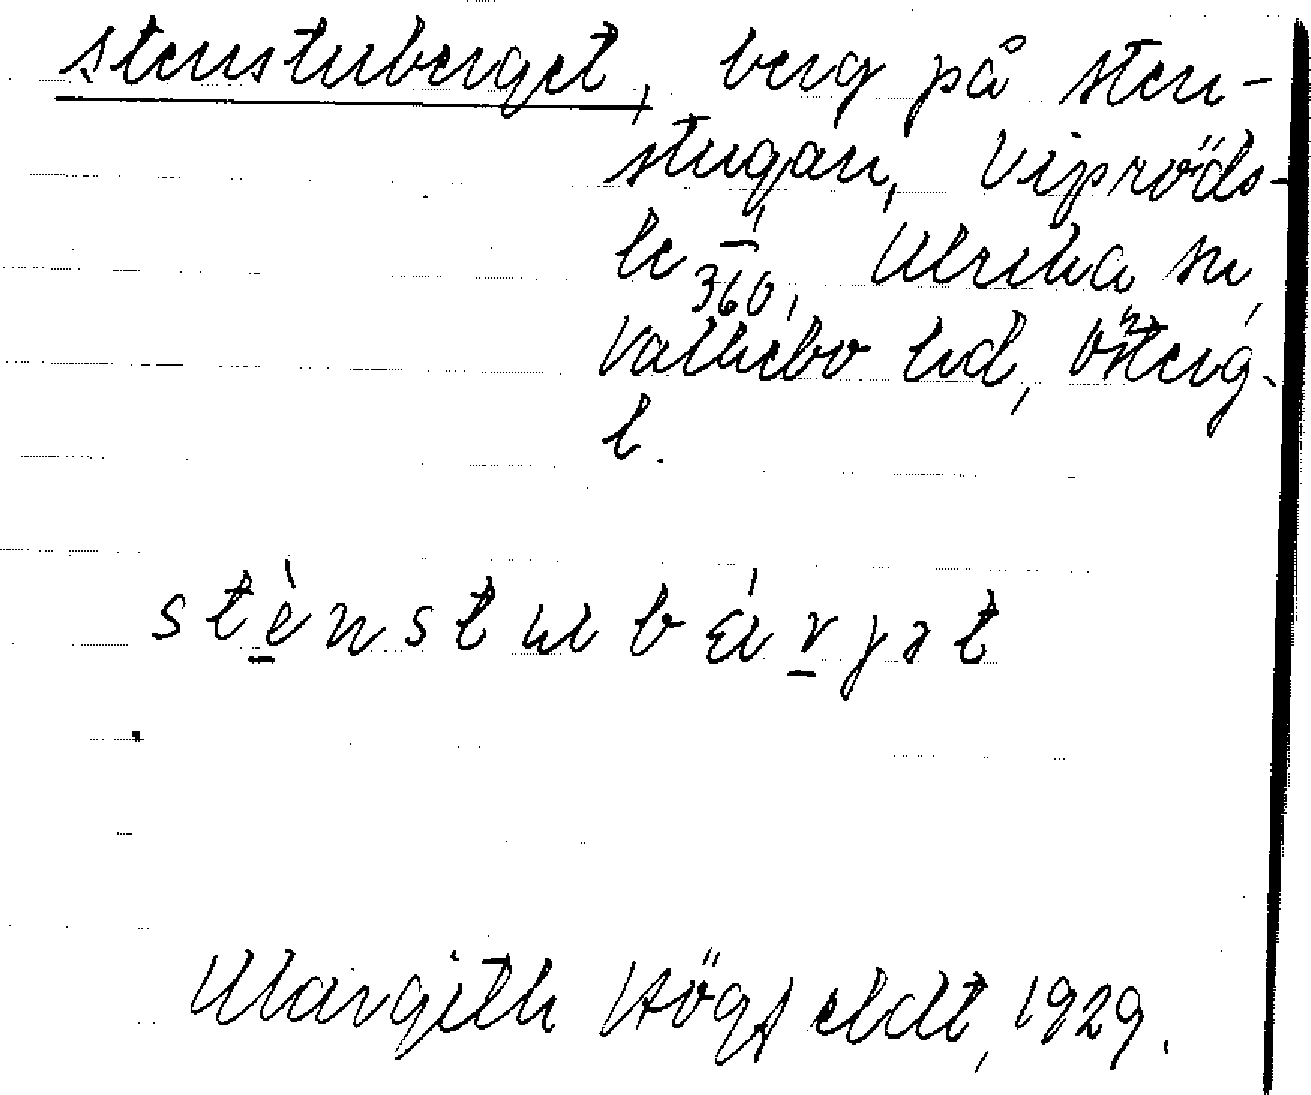 Stenstuberget, berg på Sten-
stugan, Vipröds-
le 1/360, Ulrika sn,
Valkebo hd, Österg.
l.
stènstubä́rjət
Margith Högfeldt, 1929.